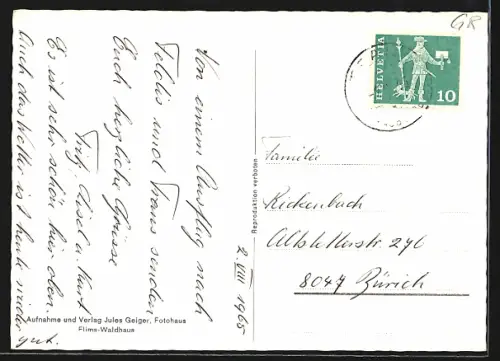 Von einem Ausflug nach
Feldis und Trans senden
Euch herzliche Grüsse
Fritz, Lisel u. Kurt
Es ist sehr schön hier oben.
Auch das Wetter ist heute wieder
gut.
2. VIII 1965
Aufnahme und Verlag Jules Geiger, Fotohaus
Flims-Waldhaus
Reproduktion verboten
GR
HELVETIA
10
Familie
Rickenbach
Altstetterstr. 276
8047 Zürich